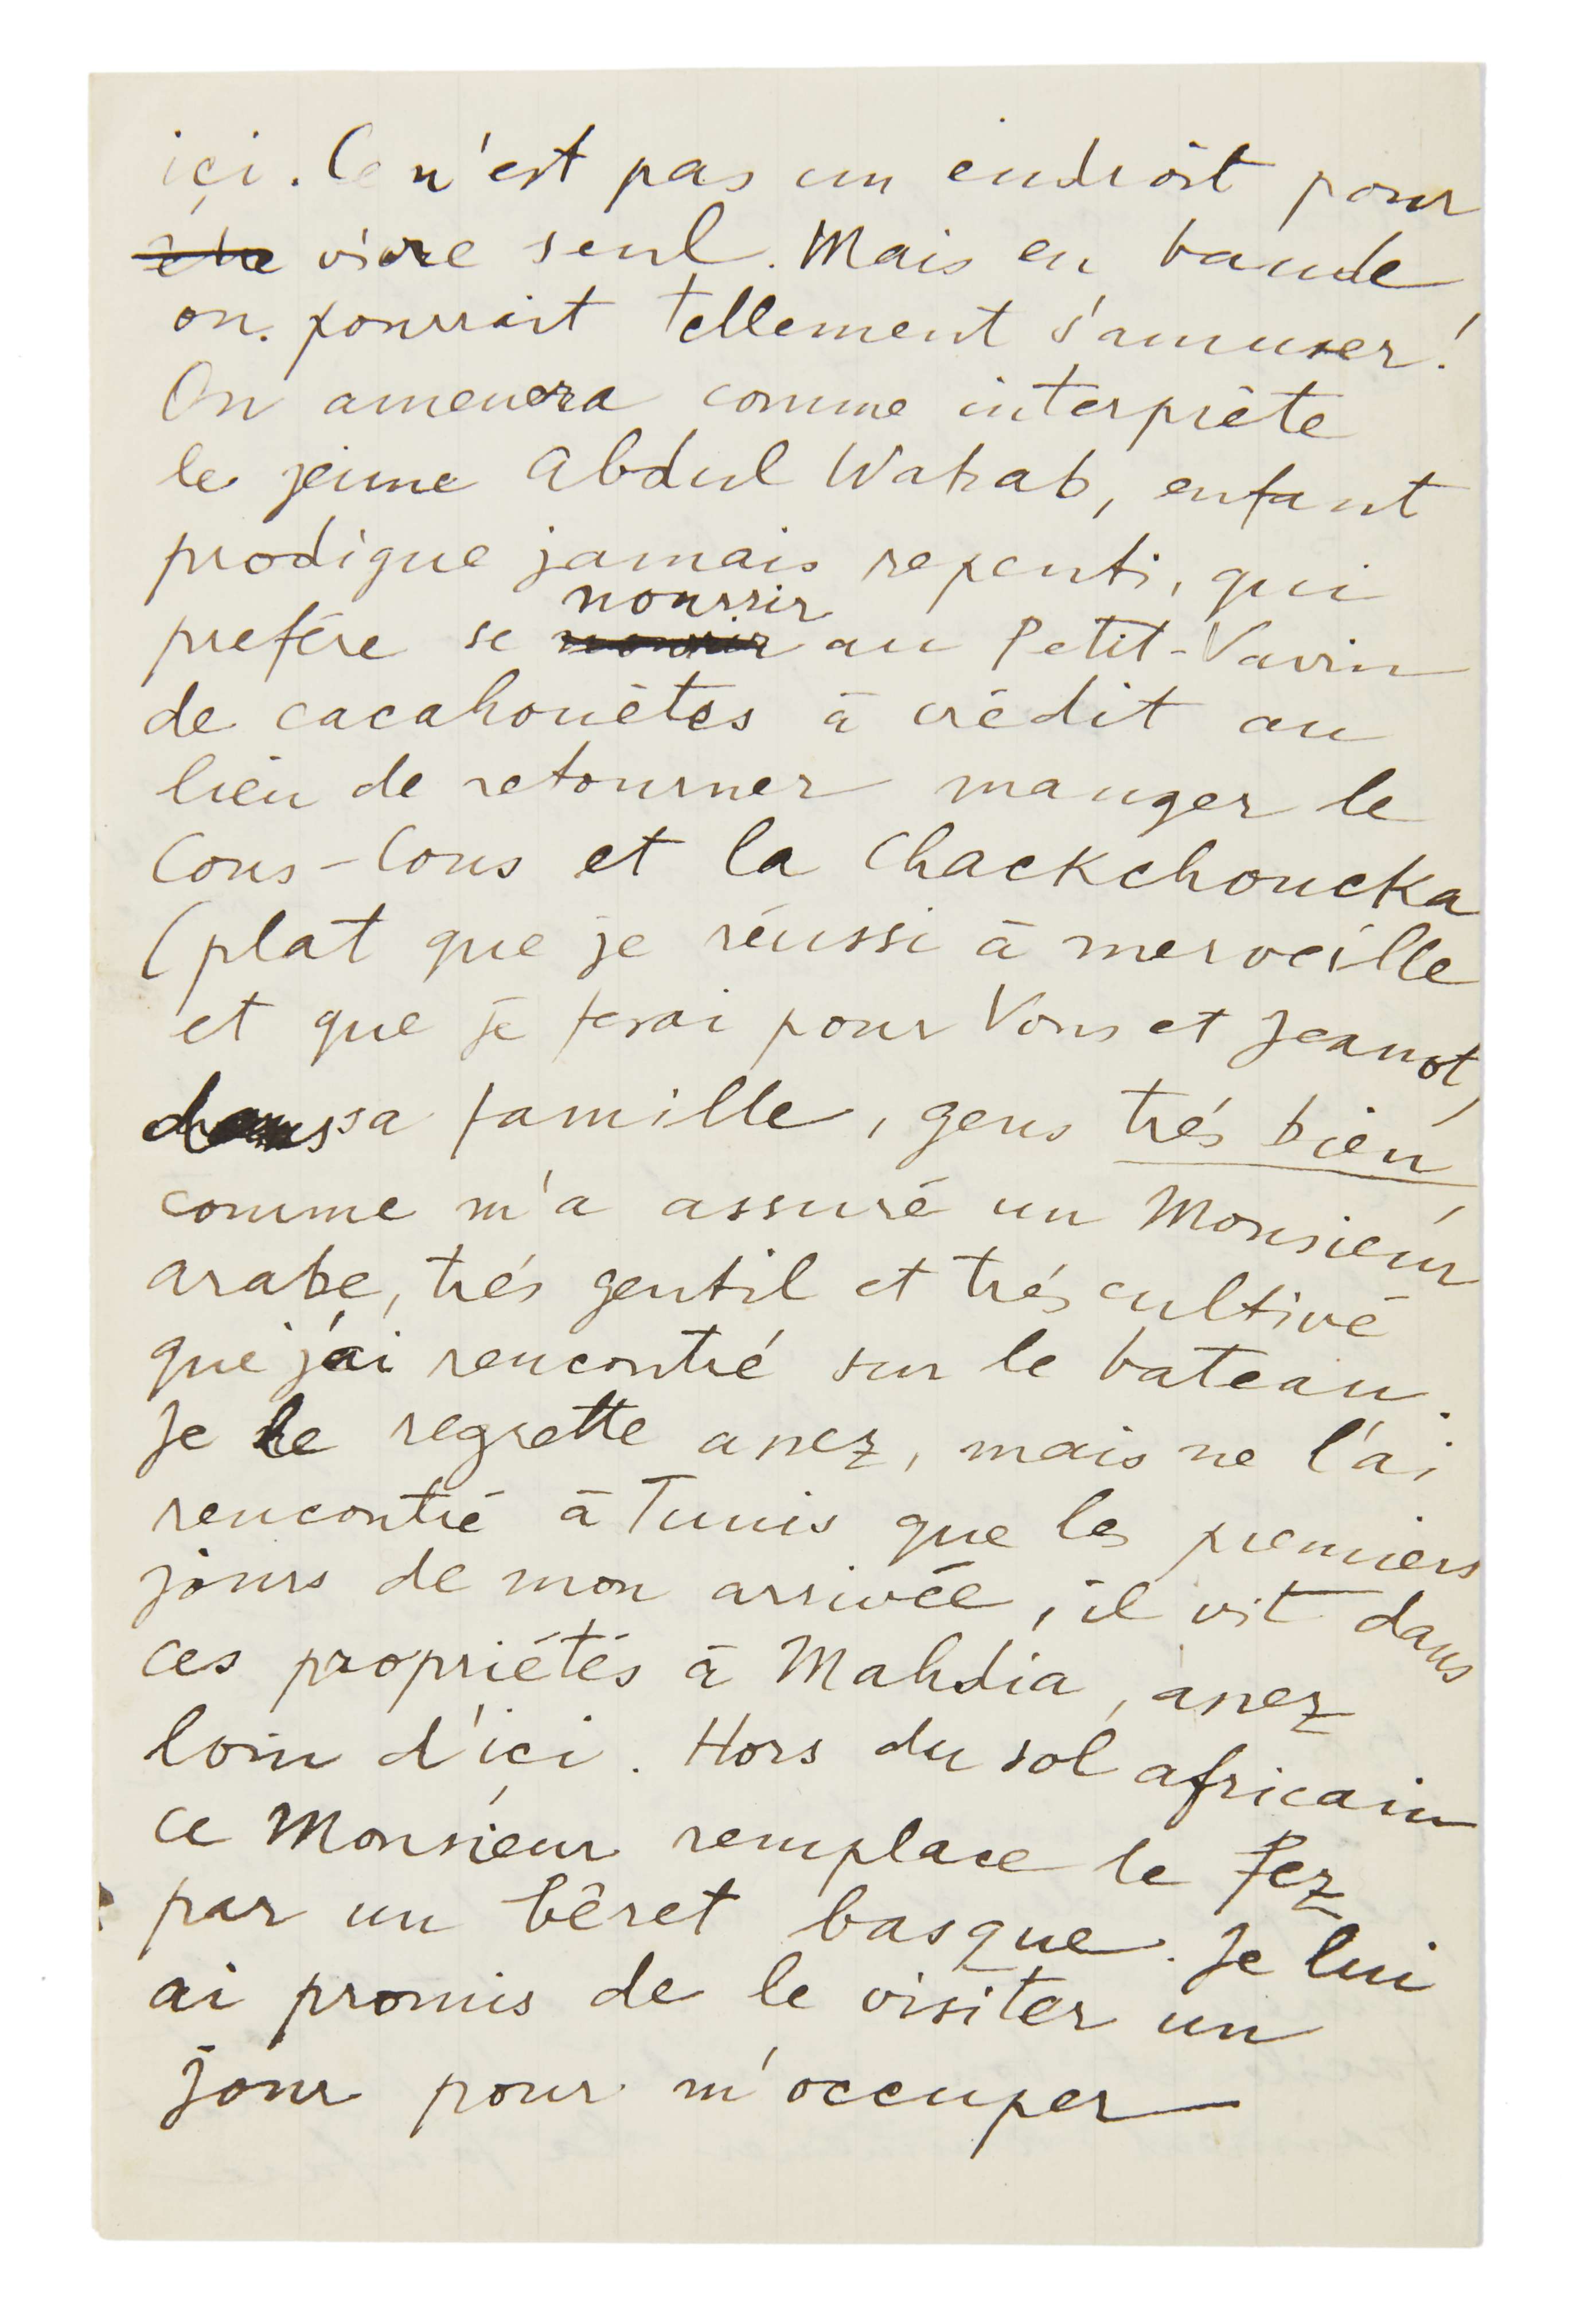 içi. Ce n'est pas un endroit pour
être vivre seul. Mais en bande
on pourrait tellement s'amuser!
On amenera comme interprète
le jeune Abdul Wahab, enfant
prodigue jamais repenti, qui
nourrir
prefére se nourir au Petit-Vavin
de cacahouètes à crédit au
lieu de retourner manger le
Cous-Cous et la Chackchoucka
(plat que je réussi à merveille
et que je ferai pour Vous et Jeannot,
dans sa famille, gens trés bien,
comme m'a assuré un Monsieur
arabe, trés gentil et trés cultivé
que j'ai rencontré sur le bateau.
Je le regrette assez, mais ne l'ai
rencontré à Tunis que les premiers
jours de mon arrivée, il vit dans
ces propriétés à Mahdia, assez
loin d'içi. Hors du sol africain
ce Monsieur remplace le Fez
par un bêret basque. Je lui
ai promis de le visiter un
jour pour m'occuper